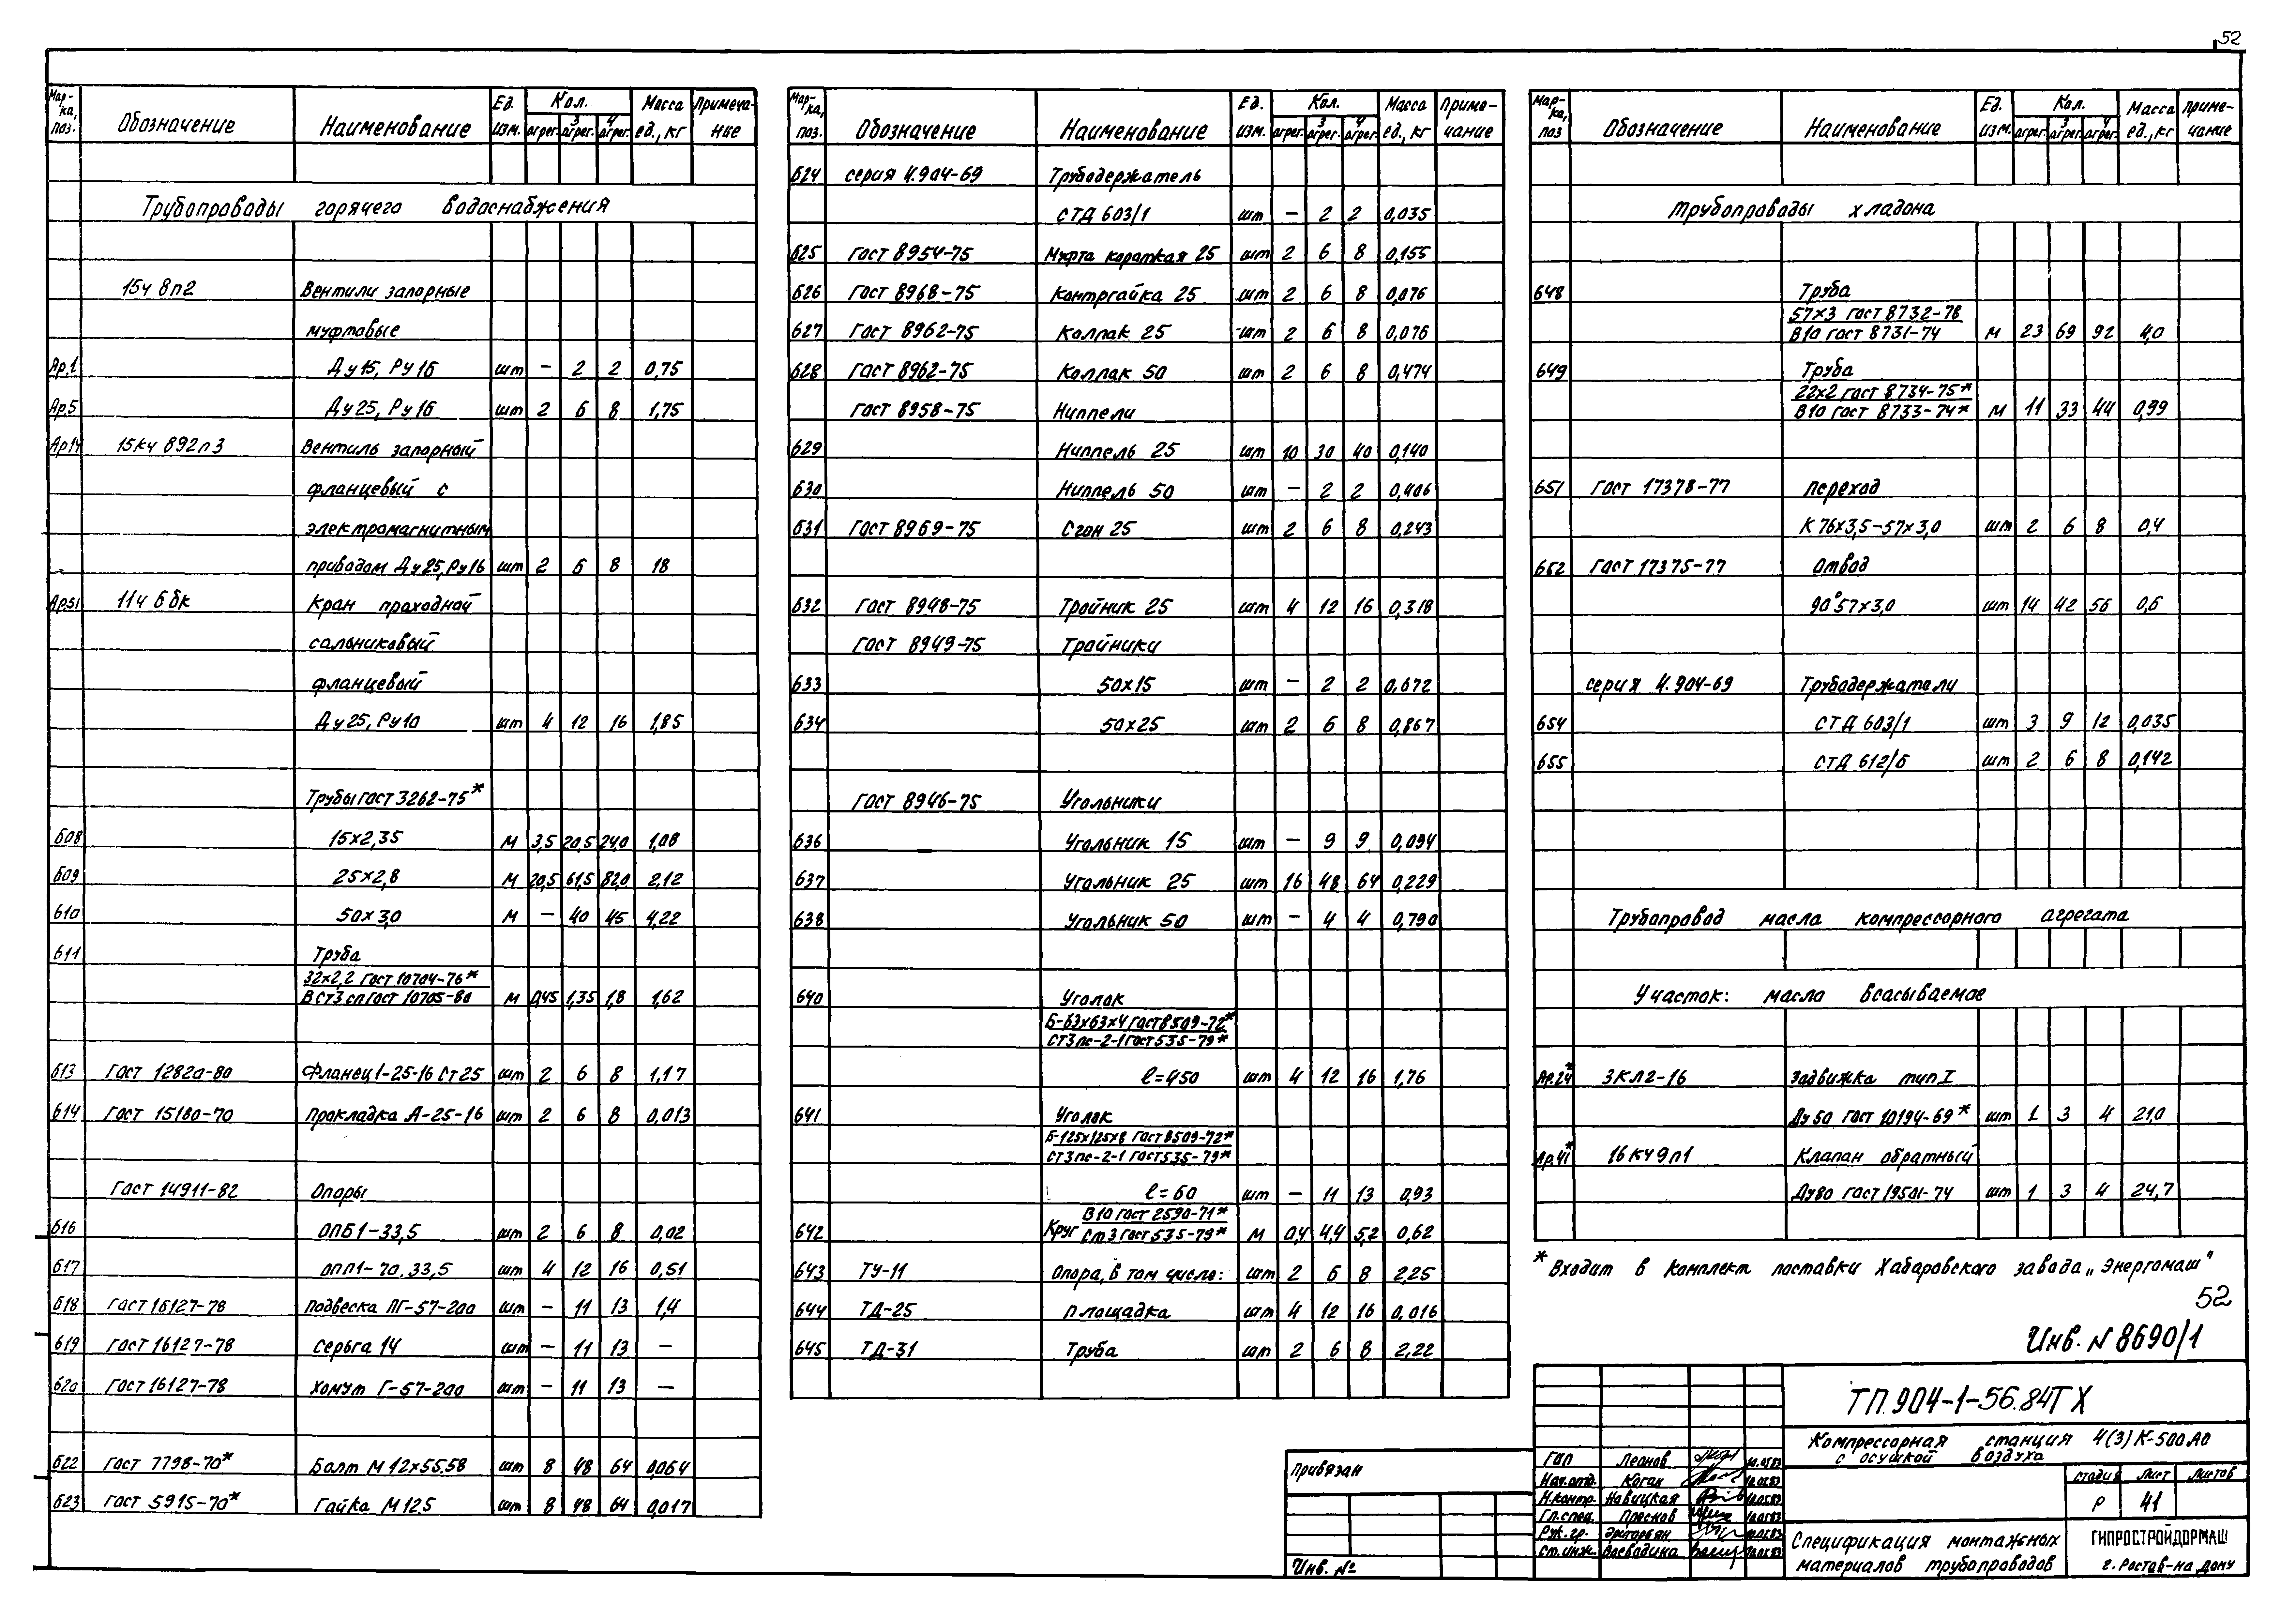 52
Мар-ка, поз. Обозначение Наименование Ед. изм. Кол. агрег. 3 агрег. 4 агрег. Масса ед., кг Примеча-ние
Трубопроводы горячего водоснабжения
15ч 8п2 Вентили запорные
муфтовые
Ар.1 Ду15, Ру16 шт – 2 2 0,75
Ар.5 Ду25, Ру16 шт 2 6 8 1,75
Ар14 15кч 892п3 Вентиль запорный
фланцевый с
электромагнитным
приводом Ду25, Ру16 шт 2 6 8 18
Ар51 11ч 6бк Кран проходной
сальниковый
фланцевый
Ду25, Ру10 шт 4 12 16 1,85
Трубы гост 3262-75*
608 15х2,35 м 3,5 20,5 24,0 1,08
609 25х2,8 м 20,5 61,5 82,0 2,12
610 50х3,0 м – 40 45 4,22
611 Труба
32х2,2 гост 10704-76*
В Ст3 сп гост 10705-80 м 0,45 1,35 1,8 1,62
613 Гост 12820-80 Фланец 1-25-16 Ст 25 шт 2 6 8 1,17
614 Гост 15180-70 Прокладка А-25-16 шт 2 6 8 0,013
Гост 14911-82 Опоры
616 ОПБ1-33,5 шт 2 6 8 0,02
617 ОПП1-70.33,5 шт 4 12 16 0,51
618 Гост 16127-78 Подвеска ПГ-57-200 шт – 11 13 1,4
619 Гост 16127-78 Серьга 14 шт – 11 13 –
620 Гост 16127-78 Хомут Г-57-200 шт – 11 13 –
622 Гост 7798-70* Болт М12х55.58 шт 8 48 64 0,064
623 Гост 5915-70* Гайка М12.5 шт 8 48 64 0,017
Мар-ка, поз. Обозначение Наименование Ед. изм. Кол. агрег. 3 агрег. 4 агрег. Масса ед., кг Приме-чание
624 серия 4.904-69 Трубодержатель
СТД 603/1 шт – 2 2 0,035
625 Гост 8954-75 Муфта короткая 25 шт 2 6 8 0,155
626 Гост 8968-75 Контргайка 25 шт 2 6 8 0,076
627 Гост 8962-75 Колпак 25 шт 2 6 8 0,076
628 Гост 8962-75 Колпак 50 шт 2 6 8 0,474
Гост 8958-75 Ниппели
629 Ниппель 25 шт 10 30 40 0,140
630 Ниппель 50 шт – 2 2 0,406
631 Гост 8969-75 Сгон 25 шт 2 6 8 0,243
632 Гост 8948-75 Тройник 25 шт 4 12 16 0,318
Гост 8949-75 Тройники
633 50х15 шт – 2 2 0,672
634 50х25 шт 2 6 8 0,867
Гост 8946-75 Угольники
636 Угольник 15 шт – 9 9 0,094
637 Угольник 25 шт 16 48 64 0,229
638 Угольник 50 шт – 4 4 0,790
640 Уголок
Б-63х63х4 Гост 8509-72*
Ст3пс-2-1 Гост 535-79*
ℓ=450 шт 4 12 16 1,76
641 Уголок
Б-125х125х8 Гост 8509-72*
Ст3пс-2-1 Гост 535-79*
ℓ=60 шт – 11 13 0,93
В10 Гост 2590-71*
642 Круг Ст3 Гост 535-79* м 0,4 4,4 5,2 0,62
643 ТУ-11 Опора, в том числе: шт 2 6 8 2,25
644 ТД-25 Площадка шт 4 12 16 0,016
645 ТД-31 Труба шт 2 6 8 2,22
Мар-ка, поз Обозначение Наименование Ед. изм. Кол. агрег. 3 агрег. 4 агрег. Масса ед., кг Приме-чание
Трубопроводы хладона
648 Труба
57х3 гост 8732-78
В10 гост 8731-74 м 23 69 92 4,0
649 Труба
22х2 гост 8734-75*
В10 гост 8733-74* м 11 33 44 0,99
651 Гост 17378-77 Переход
К 76х3,5-57х3,0 шт 2 6 8 0,4
652 Гост 17375-77 Отвод
90° 57х3,0 шт 14 42 56 0,6
серия 4.904-69 Трубодержатели
654 СТД 603/1 шт 3 9 12 0,035
655 СТД 612/6 шт 2 6 8 0,142
Трубопровод масла компрессорного агрегата
Участок: масло всасываемое
Ар.24* ЗКЛ2-16 Задвижка тип I
Ду 50 гост 10194-69* шт 1 3 4 21,0
Ар.41* 16кч 9п1 Клапан обратный
Ду80 гост 19501-74 шт 1 3 4 24,7
* Входит в комплект поставки Хабаровского завода „Энергомаш"
52
Инв. N 8690/1
ТП.904-1-56.84ТХ
Компрессорная станция 4(3)К-500АО
с осушкой воздуха
стадия лист листов
Р 41
Спецификация монтажных
материалов трубопроводов
ГИПРОСТРОЙДОРМАШ
г. Ростов-на Дону
Гип Леонов
Нач.отд. Коган
Н.контр. Новицкая
Гл.спец. Преснов
Рук.гр.
Ст.инж. Воеводина
Привязан
Инв. №